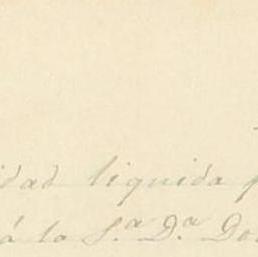 idad liquida p
á la S.ª D.ª Do